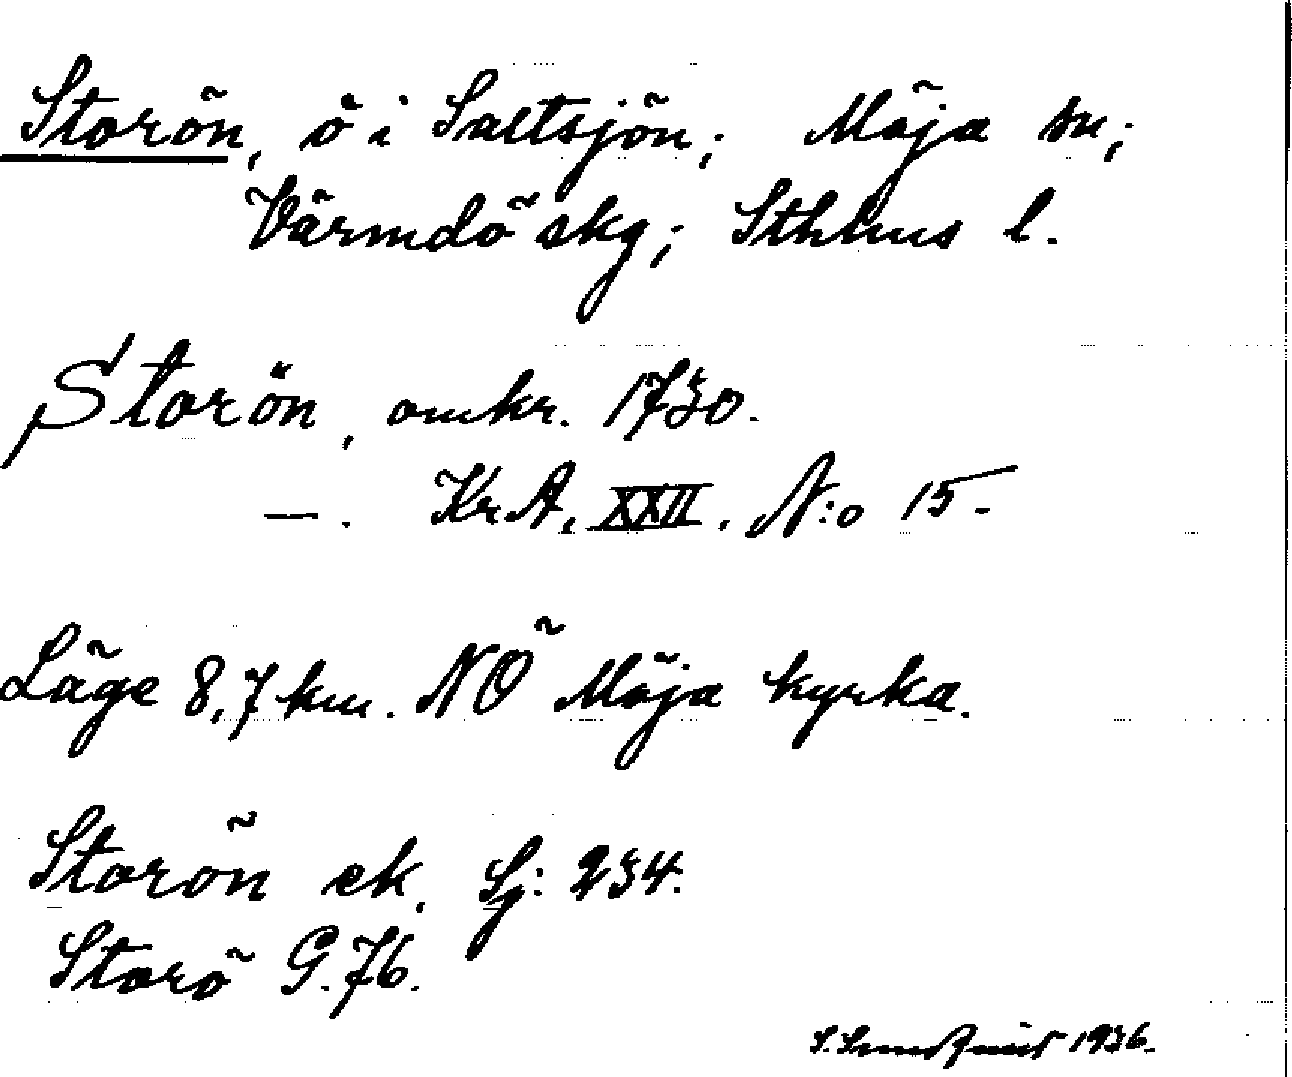 Storön, ö i Saltsjön; Möja sn;
Värmdö skg; Sthlms l.
Storön, omkr. 1730.
—. Kr.A. XXII. N:o 15.
Läge 8,7 km. NÖ Möja kyrka.
Storön ek. Sj: 234.
Storö G.76.
1936.